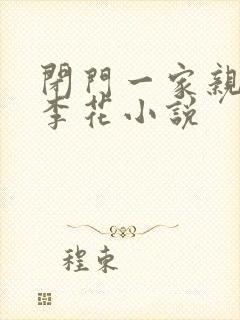 閉門一家親
李花小説
程東